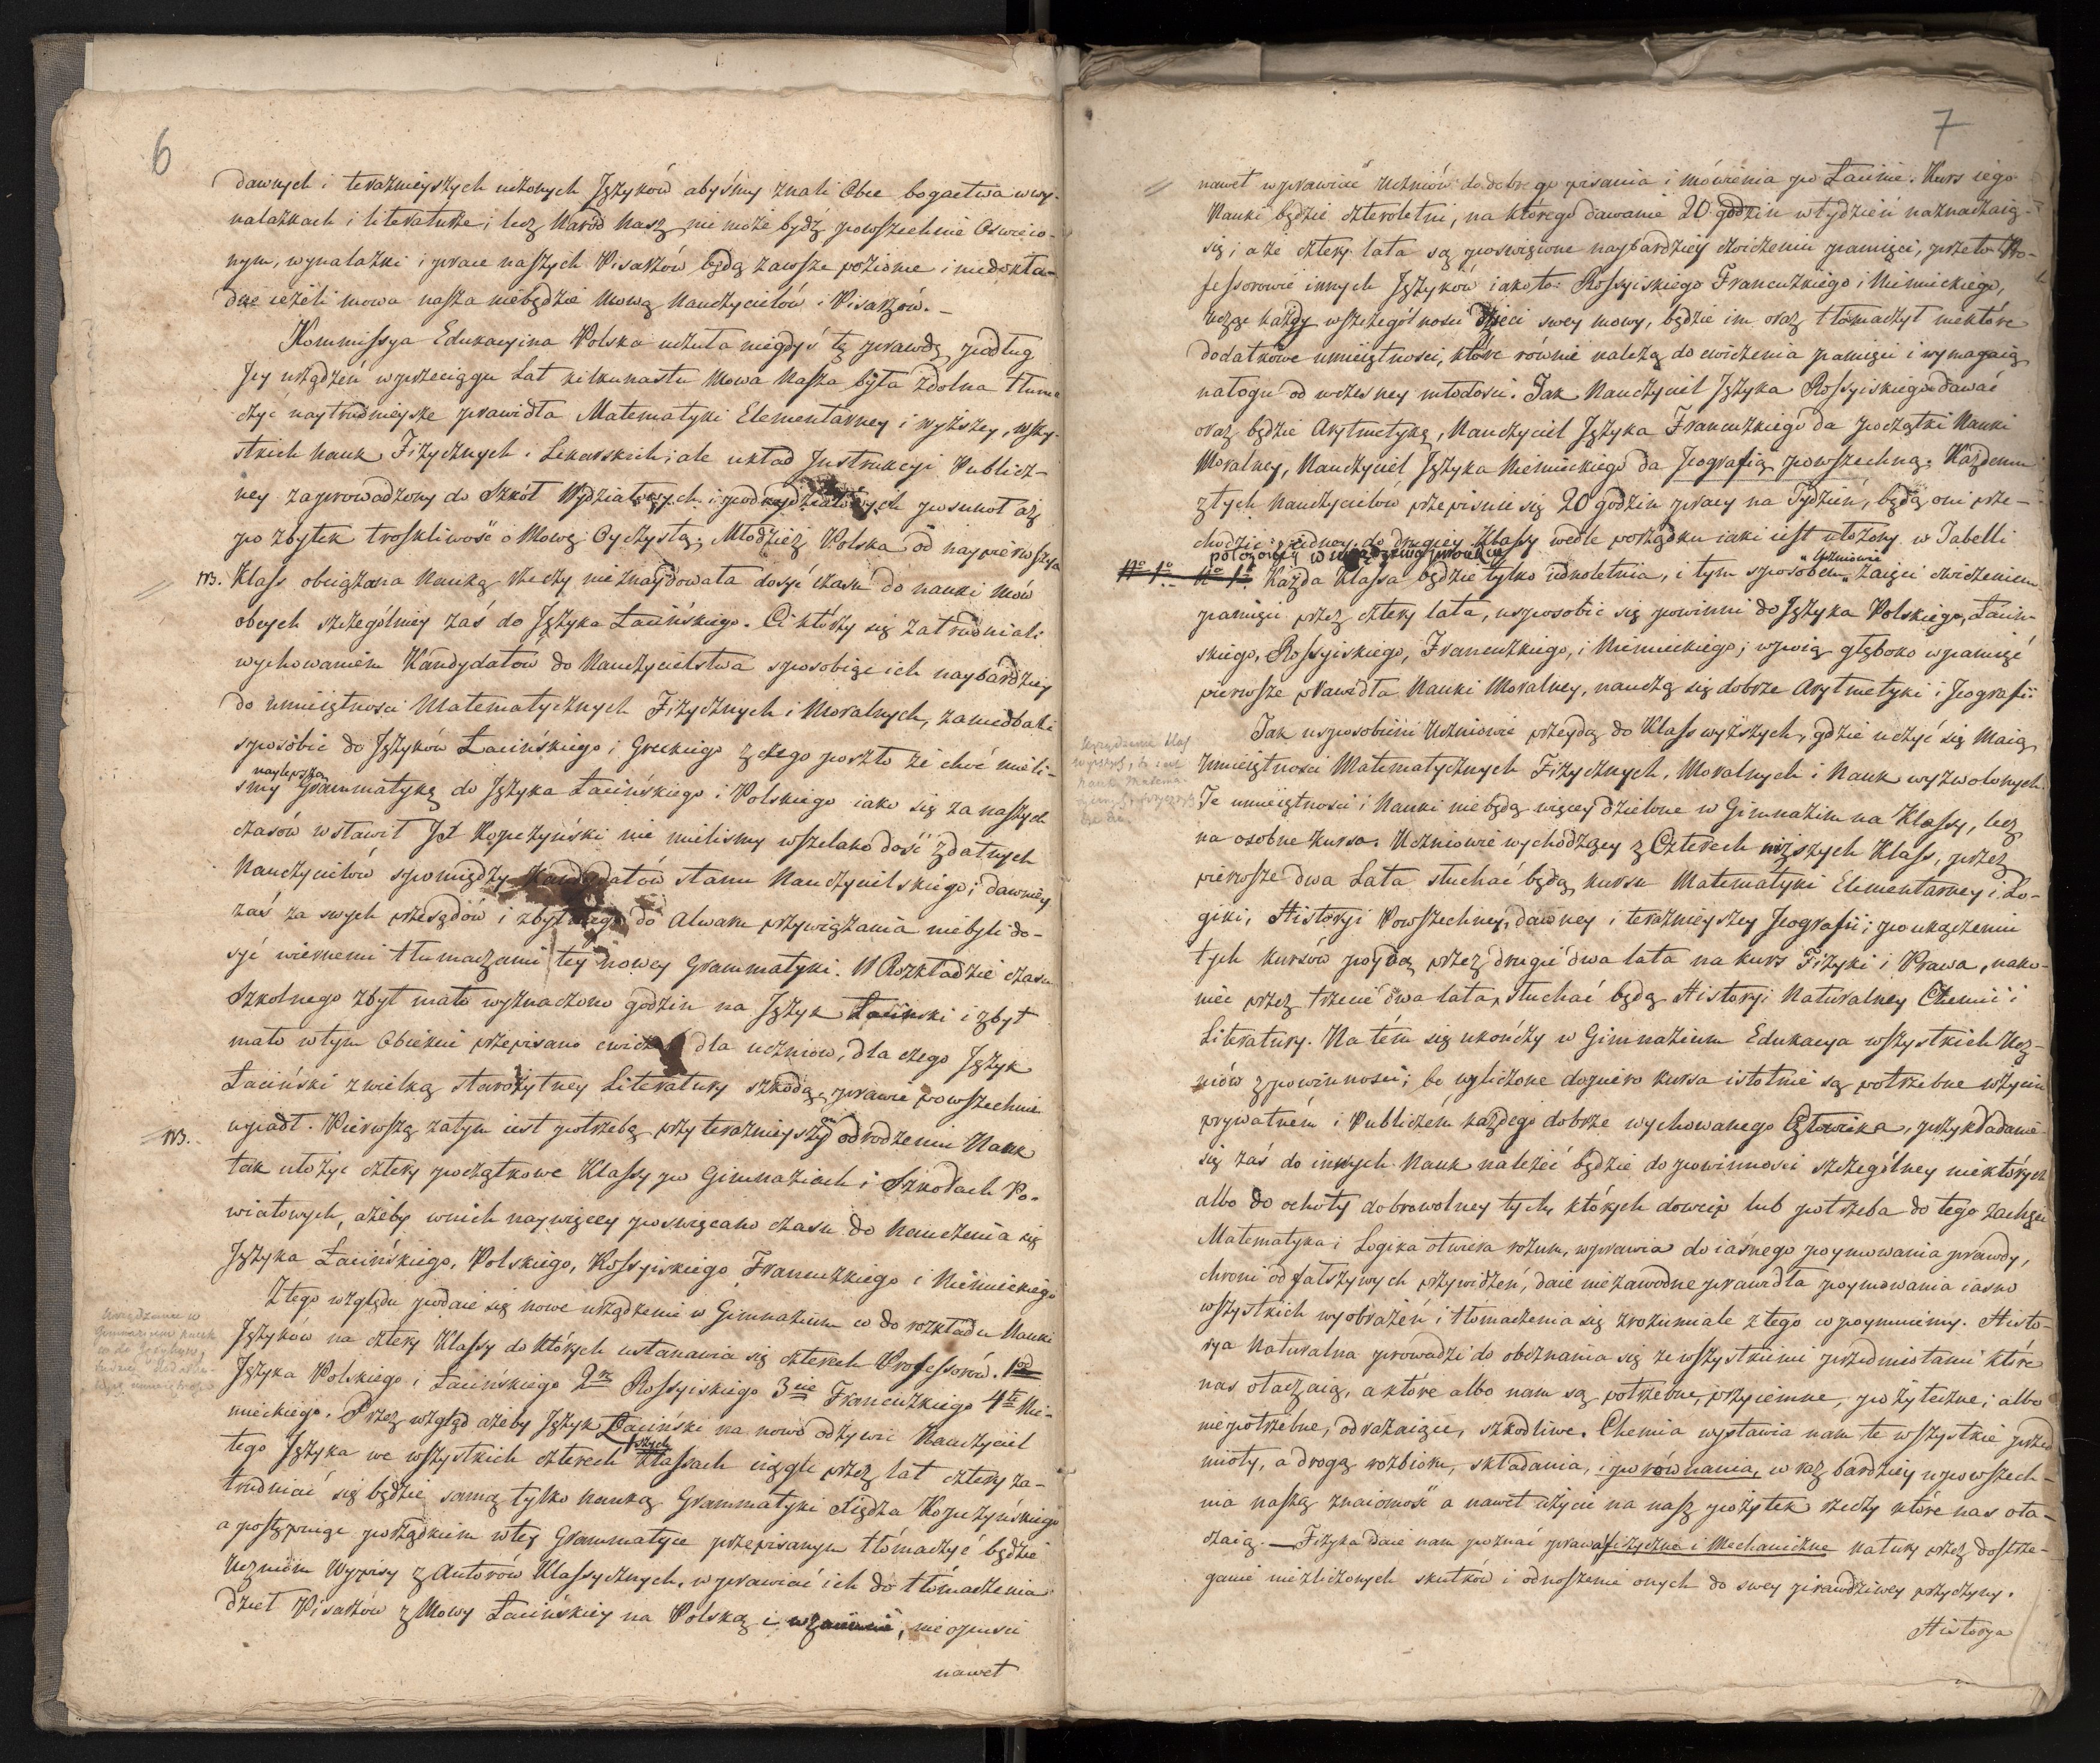 6
dawnych i teraznieyszych uczonych Języków abyśmy znali Obce bogactwa w wy-
nalazkach i literaturze; lecz Naród Nasz nie może bydź powszechnie Oswieco-
nym, wynalazki i prace naszych Pisarzów będą zawsze poziome i niedokła-
dne ieżeli mowa nasza niebędzie Mową Nauczycielów i Pisarzów. –
Kommissya Edukacyina Polska uczuła niegdyś tę prawdę, podług
Jey urządzeń w przeciągu Lat kilkunastu Mowa Nasza była zdolna tłuma
czyć naytrudnieysze prawidła Matematyki Elementarney i wyższey, wszy-
stkich Nauk Fizycznych i Lekarskich; ale układ Instrukcyi Publicz-
ney zaprowadzony do Szkół Wydziałowych i podwydziałowych posunoł aż
po zbytek troskliwość o Mowę Oyczystą. Młodzież Polska od naypierwszych
NB. Klass obciążona Nauką Rzeczy nieznaydowała dosyć czasu do nauki Mów
obcych szczególniey zaś do Języka Łacińskiego. Ci którzy się zatrudniali
wychowaniem Kandydatów do Nauczycielstwa sposobiąc ich naybardziey
do umieiętnosci Matematycznych Fizycznych i Moralnych, zaniedbali
sposobić do Języków Łacińskiego i Greckiego z czego poszło że choć mieli-
naylepszą
smy Grammatykę do Języka Łacińskiego i Polskiego iako się za naszych
czasów wstawił JX Kopczyński nie mielismy wszelako dość zdatnych
Nauczycielów spomiędzy Kandydatów stanu Nauczycielskiego; dawniey
zaś za swych przesądów i zbytniego do Alwara przywiązania niebyli do-
syć wiernemi tłumaczami tey nowey Grammatyki. W Rozkładzie czasu
Szkolnego zbyt mało wyznaczono godzin na Język Łaciński i zbyt
mało w tym Obiekcie przepisano cwiczeń dla uczniow, dla czego Język
Łaciński z wielką starożytney Literatury szkodą, prawie powszechnie
NB. upadł. Pierwszą zatym iest potrzebą przy teraznieyszym odrodzeniu Nauk
tak ułożyć cztery początkowe Klassy po Gimnaziach i Szkołach Po-
wiatowych, ażeby w nich naywięcey poswięcano czasu do Nauczenia się
Języka Łacińskiego, Polskiego, Rossyiskiego Francuzkiego i Niemieckiego
Z tego względu podaie się nowe urządzenie w Gimnazium co do rozkładu Nauki
Języków na cztery Klassy do których ustanawia się czterech Professorów. 1od
Języka Polskiego i Łacińskiego 2gi Rossyiskiego 3cie Francuzkiego 4te Nie-
mieckiego. Przez wzgląd ażeby Język Łaciński na nowo odżywić Nauczyciel
tego Języka we wszystkich czterech Klassach ciągle przez lat cztery za-
trudniać się będzie samą tylko nauką Grammatyki Xiędza Kopczyńskiego
a postępuiąc porządkiem w tey Grammatyce przepisanym tłómaczyć będzie
Uczniom Wypisy z Autorów Klassycznych, wprawiać ich do tłómaczenia
dzieł Pisarzów z Mowy Łacińskiey na Polską i wzaiemnie, nieopuści
nawet
7
nawet wprawiać Uczniów do dobrego pisania i mówienia po Łacinie. Kurs iego
Nauki będzie czteroletni, na którego dawanie 20 godzin w tydzień naznaczaią
się; a że cztery lata są poswięcone naybardziey cwiczeniu pamięci, przeto Pro-
fessorowie innych Języków iako to: Rossyiskiego Francuzkiego i Niemieckiego,
ucząc każdy wszczególności dzieci swey mowy, będzie im oraz tłómaczył niektóre
dodatkowe umieiętnosci, które równie należą do cwiczenia pamięci i wymagaią
nałogu od wczesney młodości. Jak Nauczyciel Języka Rossyiskiego dawać
oraz będzie Arytmetykę, Nauczyciel Języka Francuzkiego da początki Nauki
Moralney, Nauczyciel Języka Niemieckiego da Jeografią powszechną. Każdemu
z tych Nauczycielów przepisuie się 20 godzin pracy na Tydzień, będą oni prze-
chodzić z iedney do drugiey Klassy wedle porządku iaki iest ułożony w Tabelli
położoney w
Uczniowie
No 1o No 1o Każda Klassa będzie tylko iednoletnia, i tym sposobem zaięci cwiczeniem
pamięci przez cztery lata, usposobić się powinni do Języka Polskiego, Łaciń-
skiego, Rossyiskiego, Francuzkiego, i Niemieckiego; wpoią głęboko w pamięć
pierwsze prawidła Nauki Moralney, nauczą się dobrze Arytmetyki i Jeografii.
Jak usposobieni Uczniowie przeydą do Klass wyższych, gdzie uczyć się Maią
Umieiętnosci Matematycznych Fizycznych, Moralnych i Nauk wyzwolonych.
Te umieiętnosci i Nauki niebędą więcey dzielone w Gimnazium na Klassy, lecz
na osobne kursa. Uczniowie wychodzący z Czterech niższych Klass, przez
pierwsze dwa Lata słuchać będą kursu Matematyki Elementarney i Lo-
giki, Historyi Powszechney, dawney i teraznieyszey Jeografii; po ukończeniu
tych kursów poydą przez drugie dwa lata na kurs Fizyki i Prawa, nako-
niec przez trzecie dwa lata, słuchać będą Historyi Naturalney Chemii i
Literatury. Na tém się ukończy w Gimnazium Edukacya wszystkich Ucz-
niów z powinnosci; bo wyliczone dopiero kursa istotnie są potrzebne w życiu
prywatném i Publiczném każdego dobrze wychowanego Człowieka, przykładanie
się zaś do innych Nauk należeć będzie do powinnosci szczególney niektórych
albo do ochoty dobrowolney tych, których dowcip lub potrzeba do tego zachęci
Matematyka i Logika otwiera rozum, wprawia do iasnego poymowania prawdy,
chroni od fałszywych przywidzeń, daie niezawodne prawidła poymowania iasno
wszystkich wyobrażeń i tłómaczenia się zrozumiale z tego co poymuiemy. Histo-
rya Naturalna prowadzi do obeznania się ze wszystkiemi przedmiotami które
nas otaczaią, a które albo nam są potrzebne, przyiemne, pożyteczne; albo
niepotrzebne, odrażaiące, szkodliwe. Chemia wystawia nam te wszystkie przed
mioty, a drogą rozbioru, składania, i porównania, co raz bardziey upowszech-
nia naszą znaiomość a nawet użycie na nasz pożytek rzeczy które nas ota-
czaią. – Fizyka daie nam poznać prawa fizyczne i Mechaniczne natury przez dostrze-
ganie niezliczonych skutków i odnoszenie onych do swey prawdziwey przyczyny.
Historya